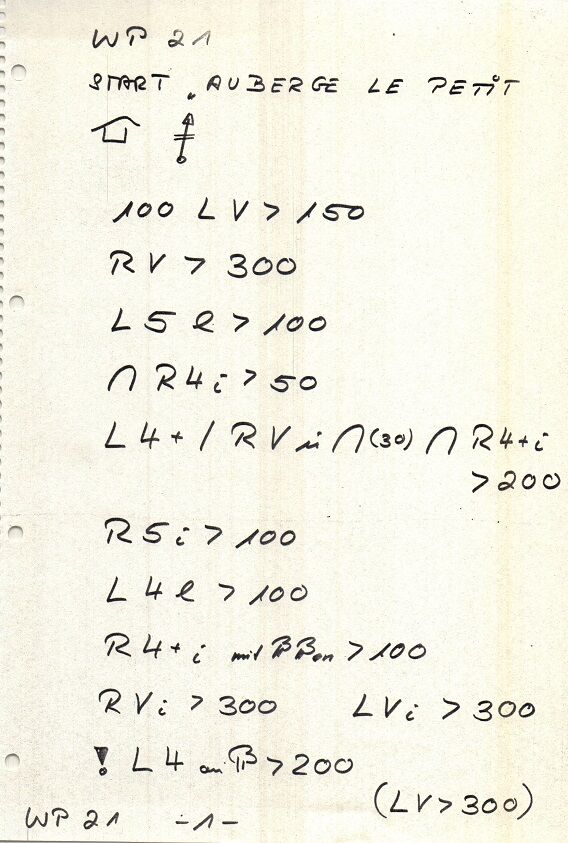 WP 21
START „AUBERGE LE PETIT
100 LV > 150
RV > 300
L5 l > 100
∩ R4i > 50
L4+ / RV in ∩ (30) ∩ R4+i
> 200
R5i > 100
L4 l > 100
R4+i mit > 100
RVi > 300 LVi > 300
! L4 > 200
(LV > 300)
WP 21 -1-